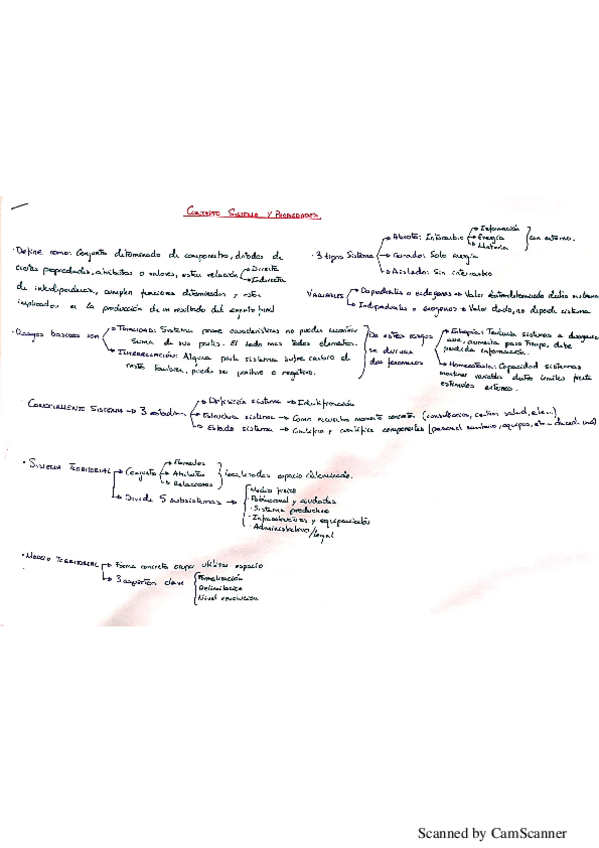 CONCEPTO SISTEMA Y PROPIEDADES
· Define como: Conjunto determinado de componentes, dotados de
ciertas propiedades, atributos o valores, estan relación Directa
Indirecta
de interdependencia, cumplen funciones determinadas y estan
implicados en la producción de un resultado del conjunto
· 3 tipos Sistema
Abierto: Intercambio
Información
Energía
Materia
con externo.
Cerrado: Solo energía
Aislado: Sin intercambio
VARIABLES
Dependientes o endógenas → Valor dentro sistema
Independientes o exogenas → Valor dado, no depende sistema
· Rasgos basicos son
TOTALIDAD: Sistema posee características no pueden
Suma de sus partes. El todo mas todos elementos.
INTERRELACIÓN: Alguna parte sistema sufre cambio el
resto tambien, puede ser positivo o negativo.
De estos rasgos
se derivan
dos fenomenos
Entropía: Tendencia sistemas a
aumenta paso tiempo, debe
perdida información.
Homeostasis: Capacidad sistemas
mantener variables dentro limites frente
estimulos externos.
· CONOCIMIENTO SISTEMA → 3 estados
Definición sistema →
Estructura sistema → Como momento concreto (consultorios, centros salud, etc...)
Estado sistema → componentes (personal sanitario, equipos, etc...
· SISTEMA TERRITORIAL
Conjunto
Atributos
Relaciones
localizadas espacio
Divide 5 subsistemas →
Medio fisico
Poblacional y
· Sistema productivo
· Infraestructuras y equipamientos
· Administrativo/legal
· MODELO TERRITORIAL
Forma concreta ocupa utiliza espacio
3 aspectos clave
Formalización
Delimitación
Nivel
Scanned by CamScanner